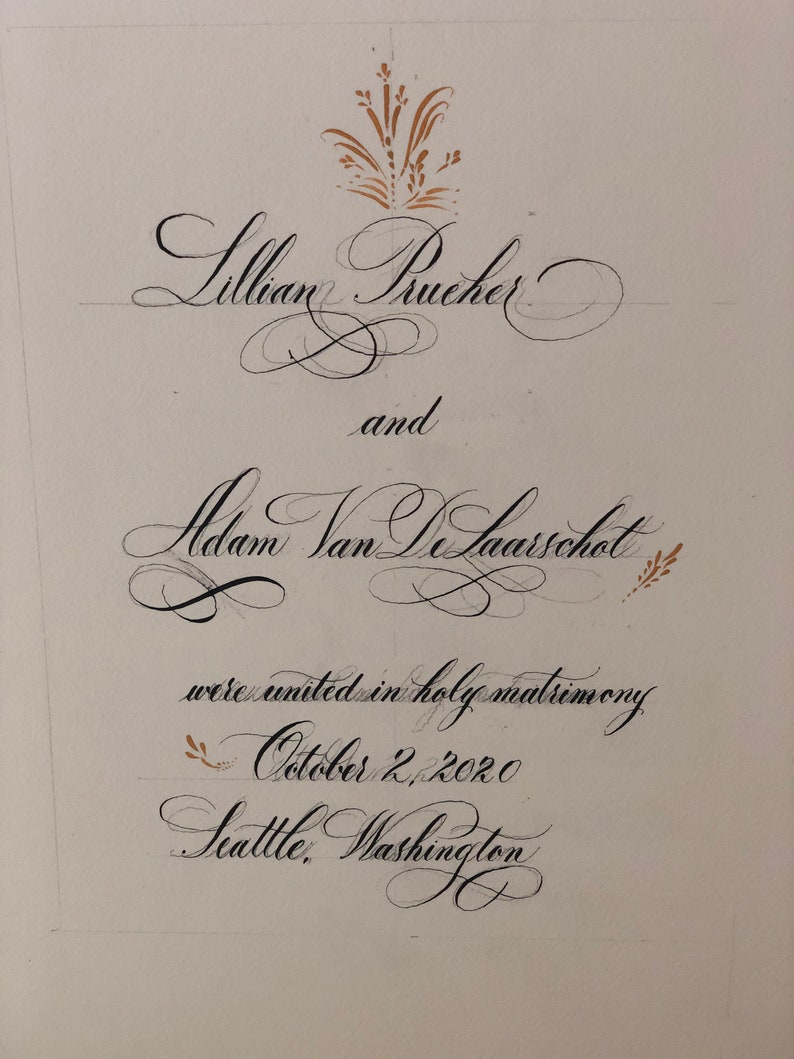 Lillian Prucher
and
Adam Van De Laarschot
were united in holy matrimony
October 2, 2020
Seattle, Washington